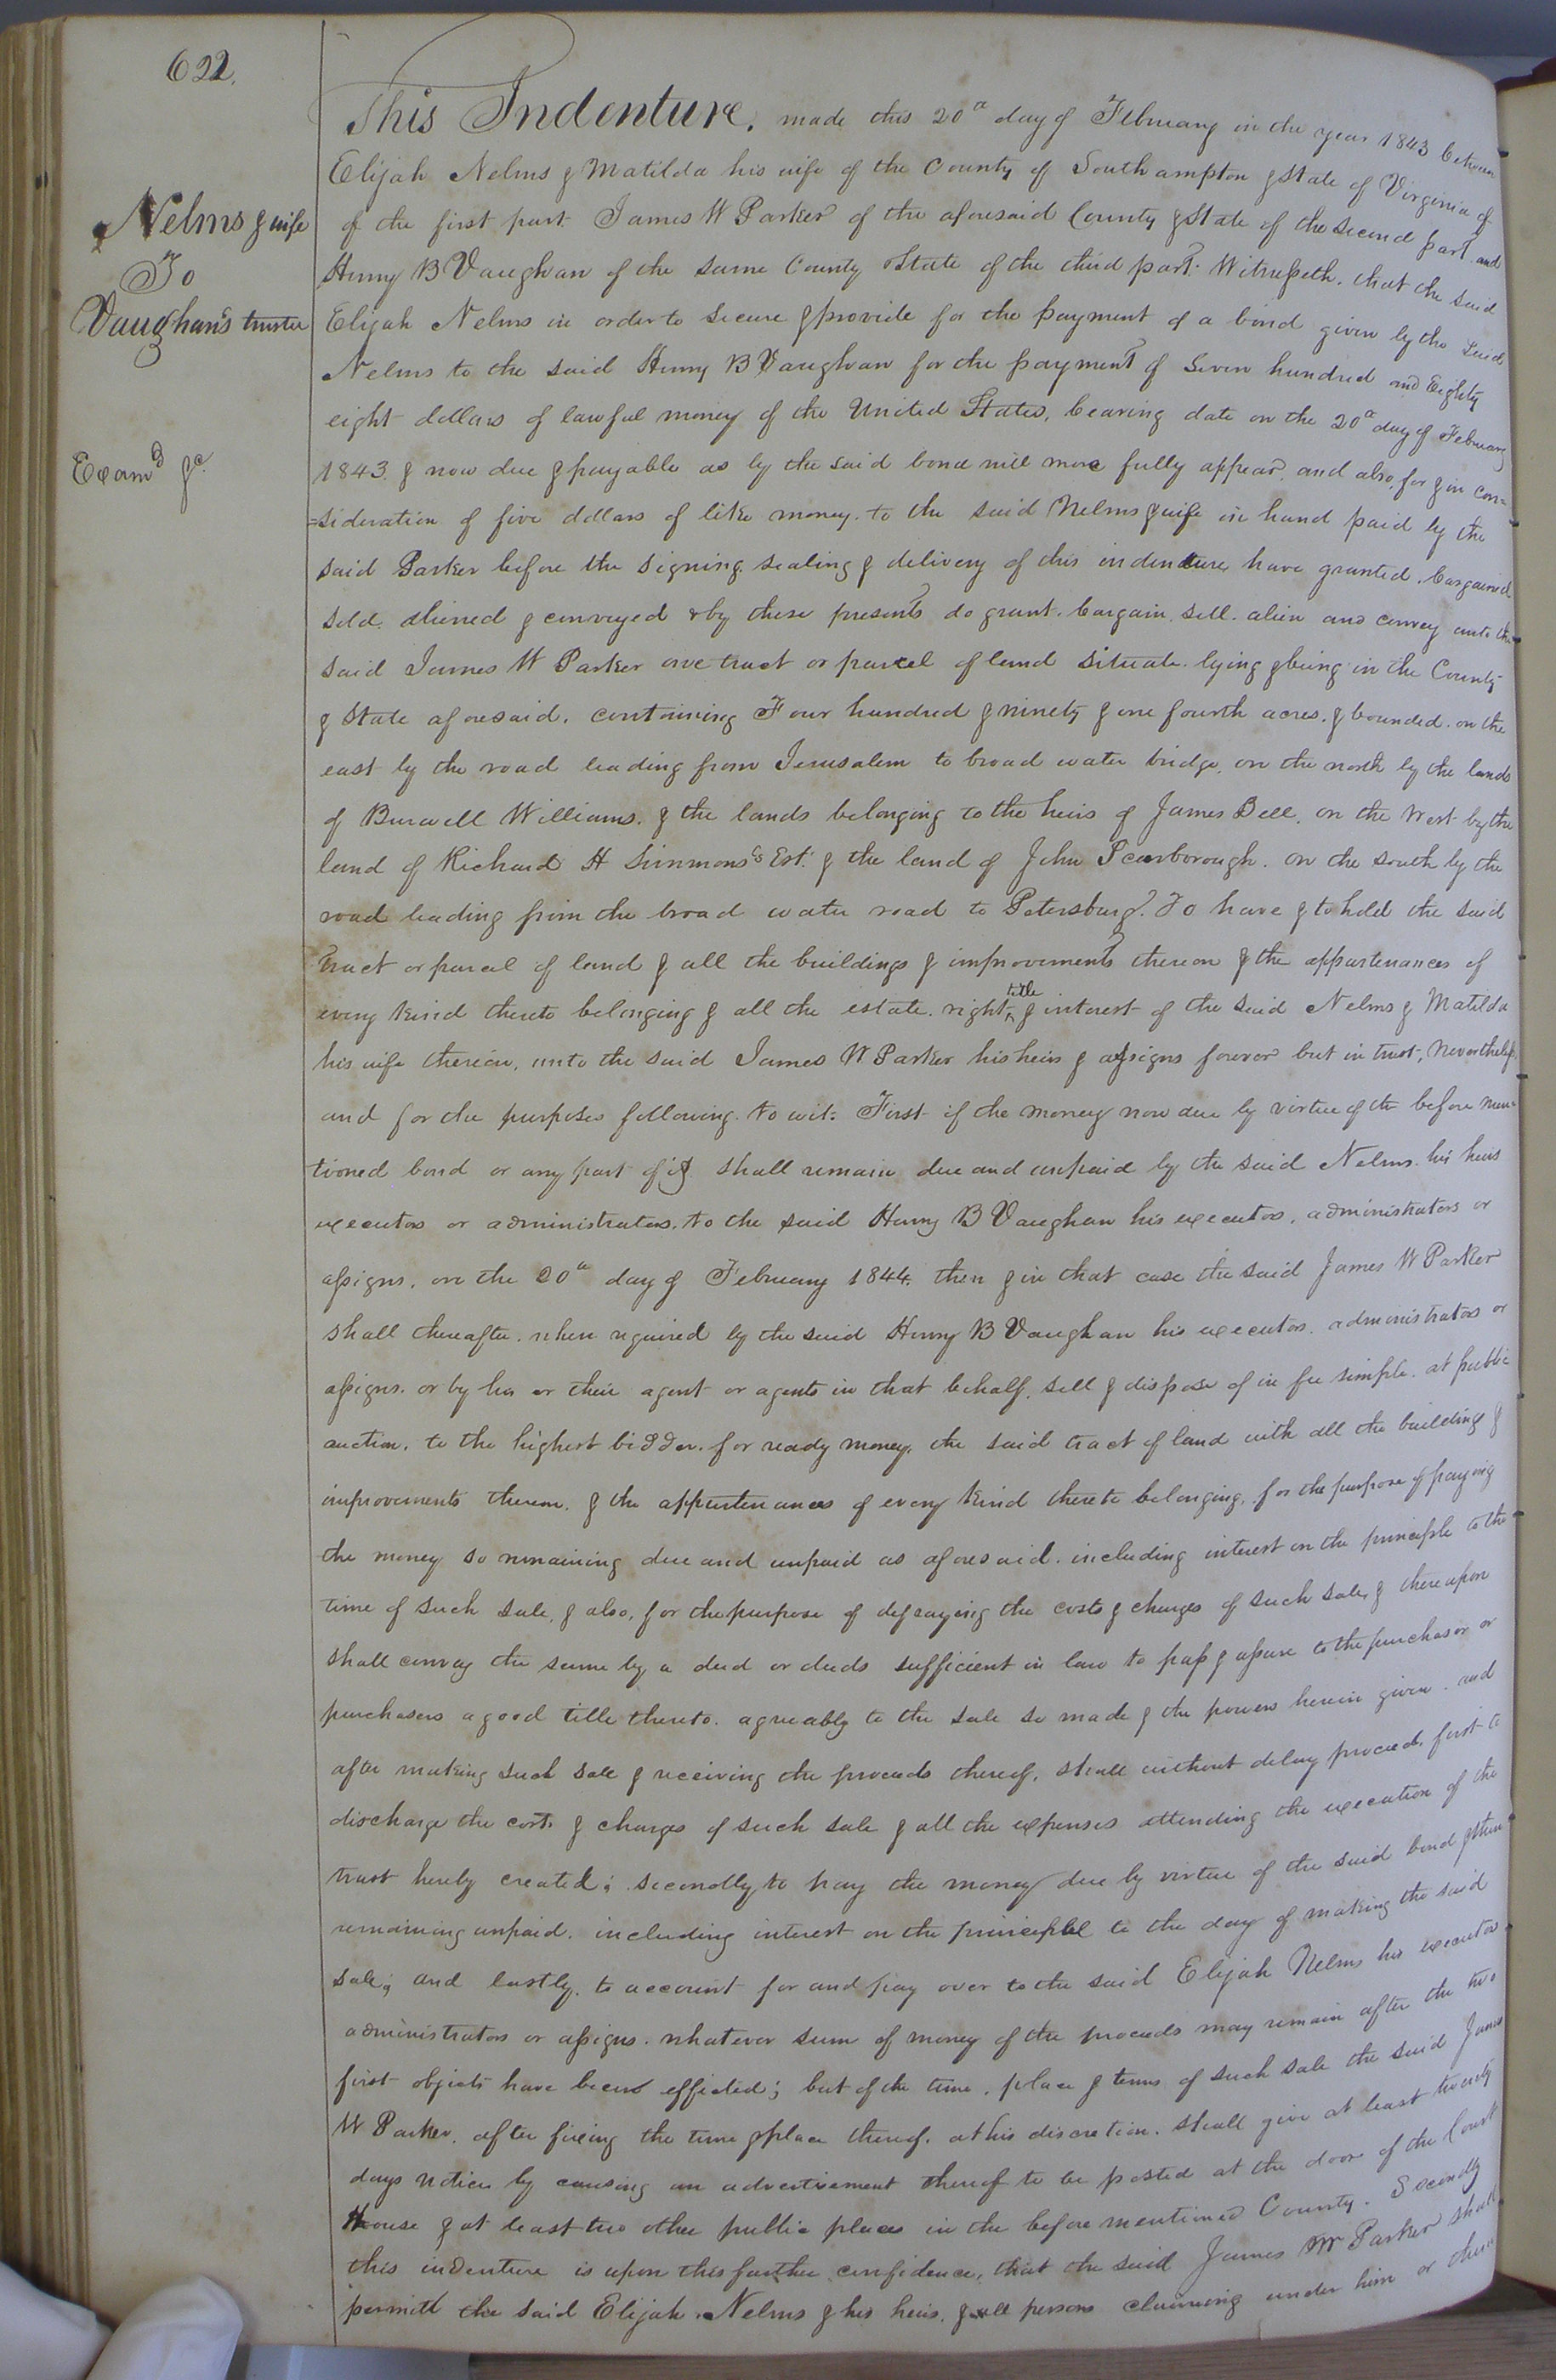 622.
Nelms & wife
To
Vaughan's trustee
Examd &c.
This Indenture, made this 20th day of February in the year 1843 between
Elijah Nelms & Matilda his wife of the County of Southampton & State of Virginia of
of the first part. James W Parker of the aforesaid County & State of the second part and
Henry B Vaughan of the same County & State of the third part. Witnesseth. that the said
Elijah Nelms in order to secure & provide for the payment of a bond given by the said
Nelms to the said Henry B Vaughan for the payment of Seven hundred and Eighty
eight dollars of lawful money of the United States, bearing date on the 20th day of February
1843. & now due & payable as by the said bond will more fully appear, and also, for & in con=
=sideration of five dollars of like money. to the said Nelms & wife in hand paid by the
said Parker before the signing sealing & delivery of this indenture, have granted, bargained
sold. aliened & conveyed & by these presents do grant. bargain. sell. alien and convey unto the
said James W Parker one tract or parcel of land situate. lying & being in the County
& State aforesaid. containing Four hundred & ninety & one fourth acres. & bounded. on the
east by the road leading from Jerusalem to broad water bridge, on the north by the lands
of Burwell Williams. & the lands belonging to the heirs of James Bell. on the West by the
land of Richard H Simmons's Est. & the land of John Scarborough. on the south by the
road leading from the broad water road to Petersburg. To have & to hold the said
tract or parcel of land & all the buildings & improvements thereon & the appurtenances of
every kind thereto belonging & all the estate. right, title & interest of the said Nelms & Matilda
his wife therein, unto the said James W Parker his heirs & assigns forever but in trust, Nevertheless,
and for the purposes following. to wit: First if the money now due by virtue of the before men=
tioned bond or any part of it shall remain due and unpaid by the said Nelms. his heirs
executors or administrators. to the said Henry B Vaughan his executors, administrators or
assigns. on the 20th day of February 1844. then & in that case the said James W Parker
shall thereafter. when required by the said Henry B Vaughan his executors. administrators or
assigns. or by his or their agent or agents in that behalf. sell & dispose of in fee simple. at public
auction. to the highest bidder. for ready money. the said tract of land with all the buildings &
improvements thereon. & the appurtenances of every kind thereto belonging, for the purpose of paying
the money so remaining due and unpaid as aforesaid. including interest on the principle to the
time of such sale, & also, for the purpose of defraying the costs & charges of such sale, & thereupon
shall convey the same by a deed or deeds sufficient in law to pass & assure to the purchaser or
purchasers a good title thereto. agreeably to the sale so made & the powers herein given. and
after making such sale & receiving the proceeds thereof, shall without delay proceed, first to
discharge the costs & charges of such sale & all the expenses attending the execution of the
trust hereby created; secondly to pay the money due by virtue of the said bond & then
remaining unpaid. including interest on the principal to the day of making the said
sale; and lastly. to account for and pay over to the said Elijah Nelms his executors
administrators or assigns. whatever sum of money of the proceeds may remain after the two
first objects have been effected; but of the time, place & terms of such sale the said James
W Parker. after fixing the time & place thereof. at his discretion. shall give at least twenty
days notice by causing an advertisement thereof to be posted at the door of the Court
House & at least two other public places in the before mentioned County. Secondly
this indenture is upon this further confidence, that the said James W Parker shall
permit the said Elijah Nelms & his heirs. & all persons claiming under him or them